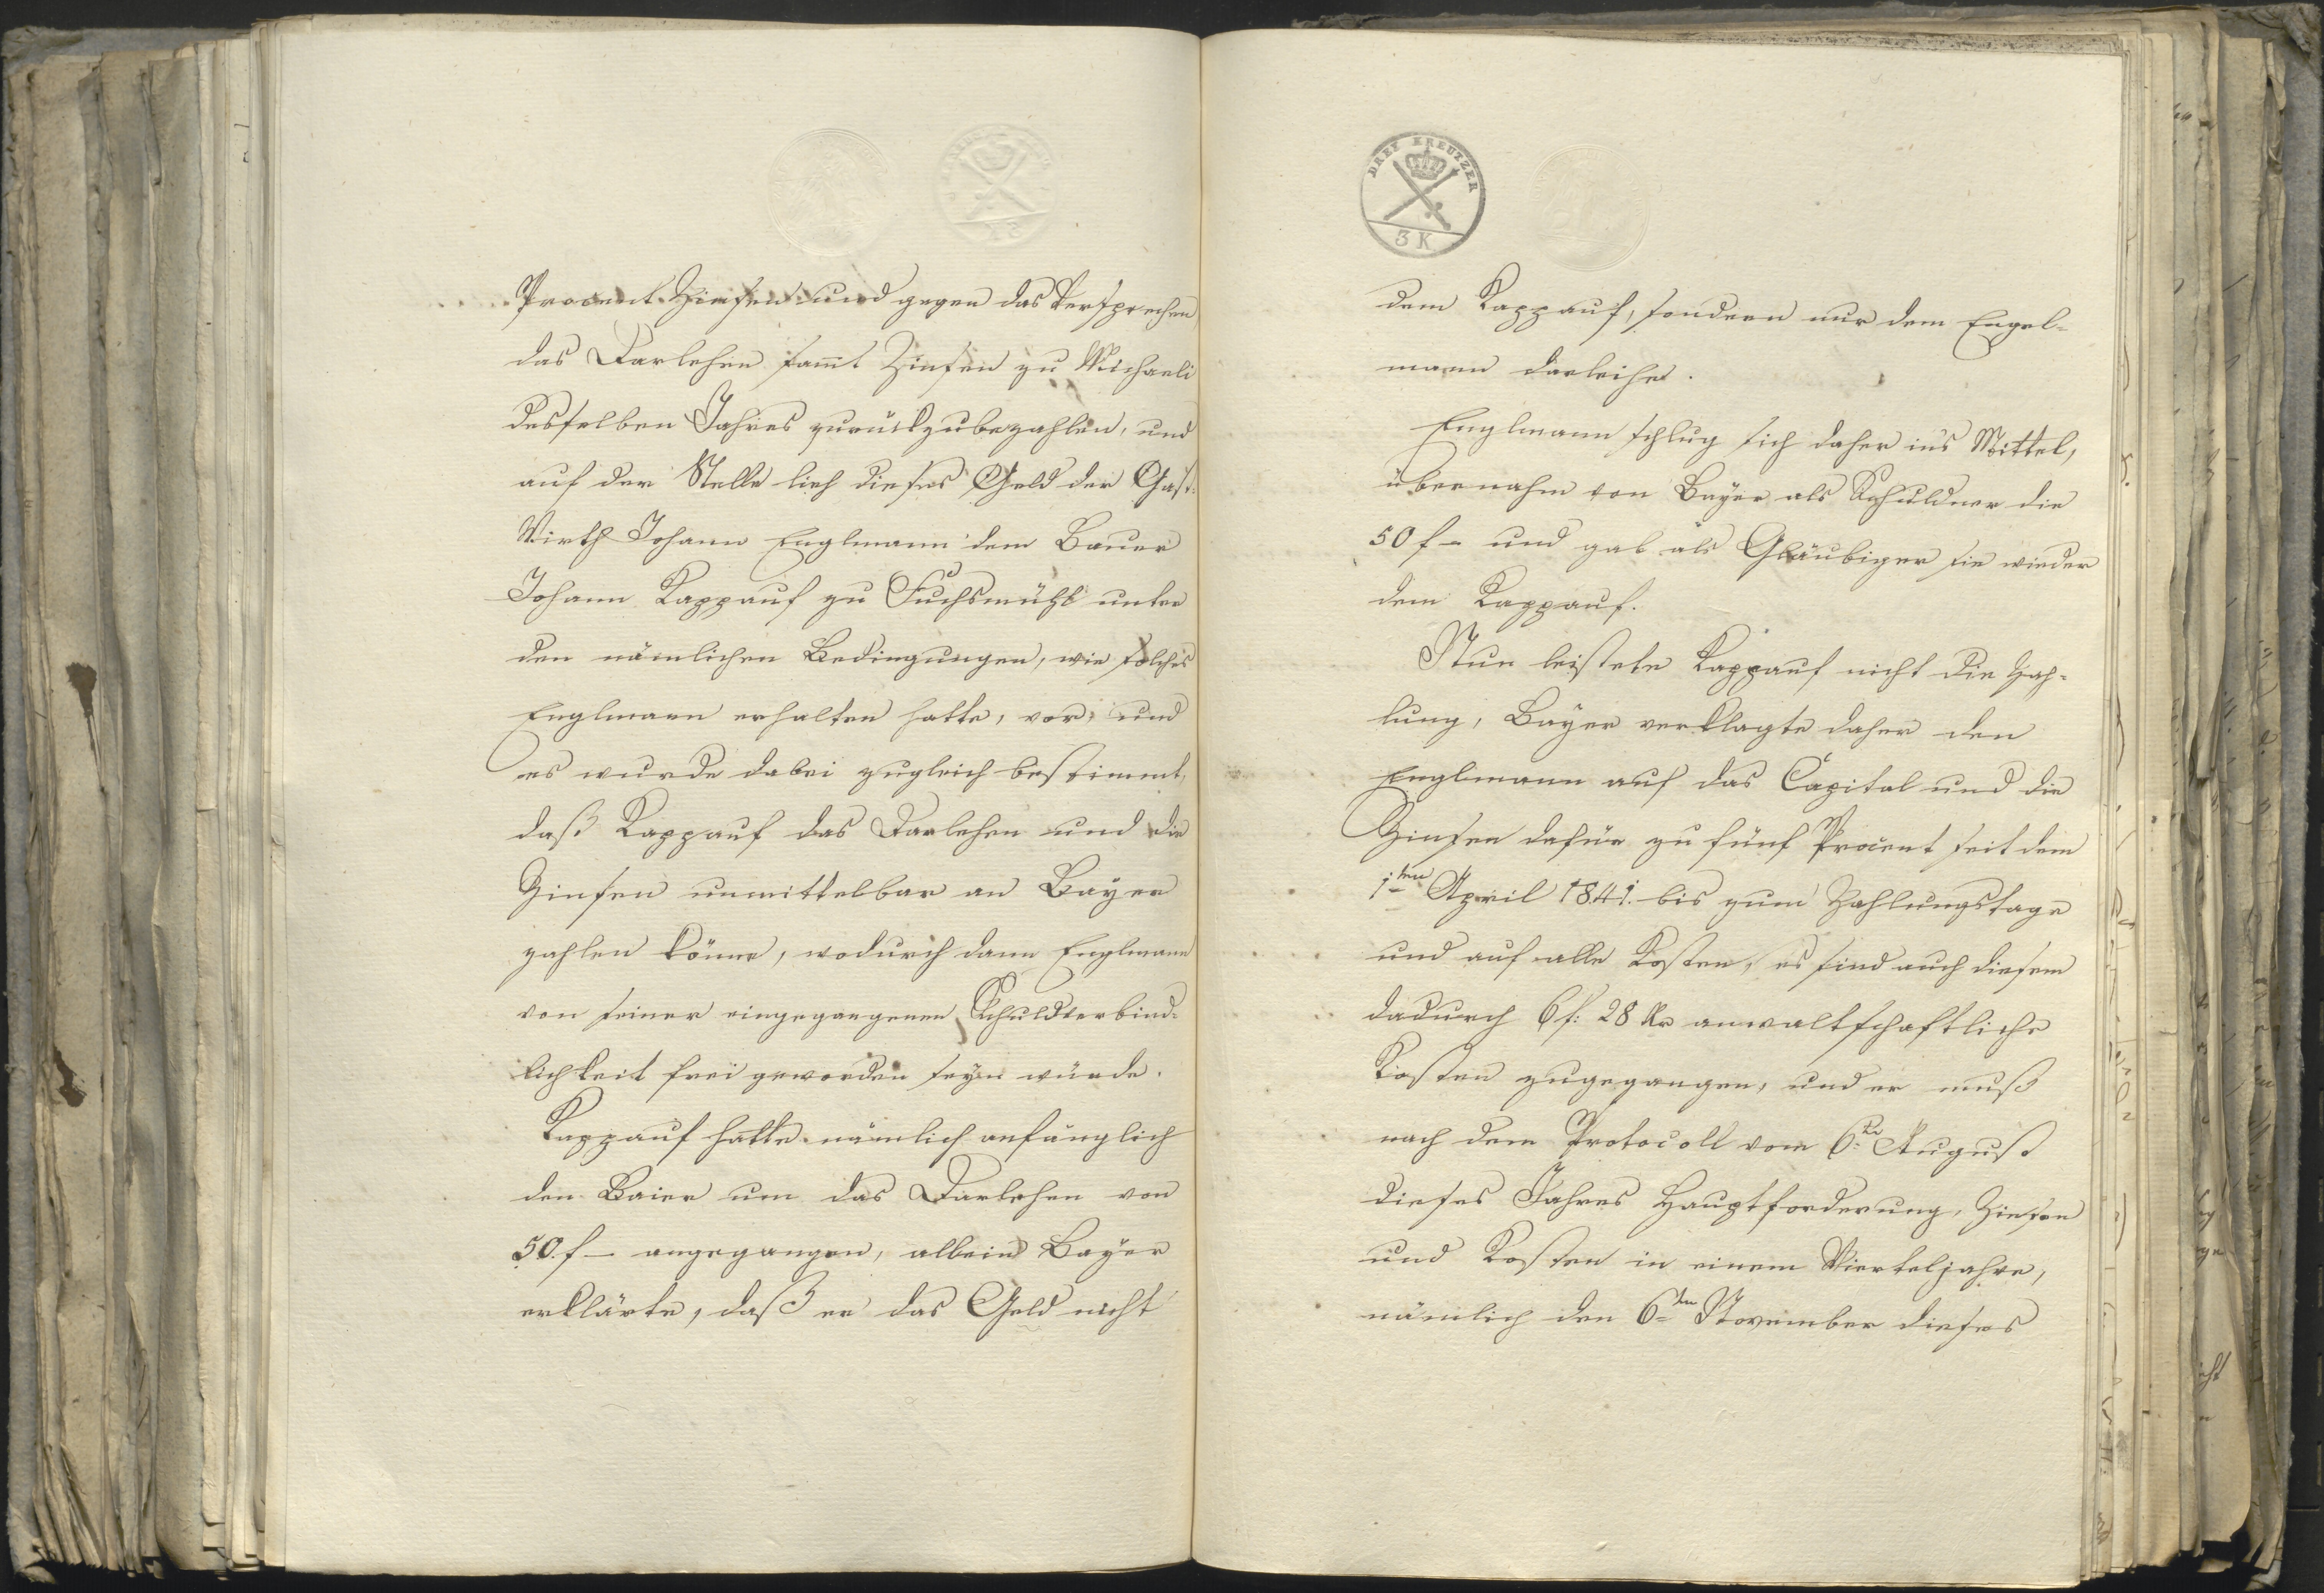 Procent Zinsen und gegen das Versprechen
das Darlehen sam̄t Zinsen zu Michaeli
desselben Jahres zurückzubezahlen, und
auf der Stelle lieh dieses Geld der Gast-
Wirth Johann Englmann dem Bauer
Johann Kappauf zu Fuchsmühl unter
den nämlichen Bedingungen, wie solches
Englmann erhalten hatte, vor, und
es wurde dabei zugleich bestimmt,
daß Kappauf das Darlehen und die
Zinsen unmittelbar an Bayer
zahlen könne, wodurch dann Englmann
von seiner eingegangenen Schuldverbind-
lichkeit frei geworden seyn würde.
Kappauf hatte nämlich anfänglich
den Baier um das Darlehen von
50. f – angegangen, allein Bayer
erklärte, daß er das Geld nicht
DREY KREUTZER
3 K
dem Kappauf, sondern nur dem Engel-
mann darleihe.
Englmann schlug sich daher in's Mittel,
übernahm von Bayer als Schuldner die
50 f – und gab als Gläubiger sie wieder
dem Kappauf.
Nun leistete Kappauf nicht die Zah-
lung, Bayer verklagte daher den
Englmann auf das Capital und die
Zinsen dafür zu fünf Procent seit dem
1ten April 1841. bis zum Zahlungstage
und auf alle Kosten, es sind auch diesem
dadurch 6 f: 28 Kr anwaltschaftliche
Kosten zugegangen, und er muß
nach dem Protocoll vom 6. August
dieses Jahres Hauptforderung, Zinsen
und Kosten in einem Vierteljahre,
nämlich den 6ten November dieses